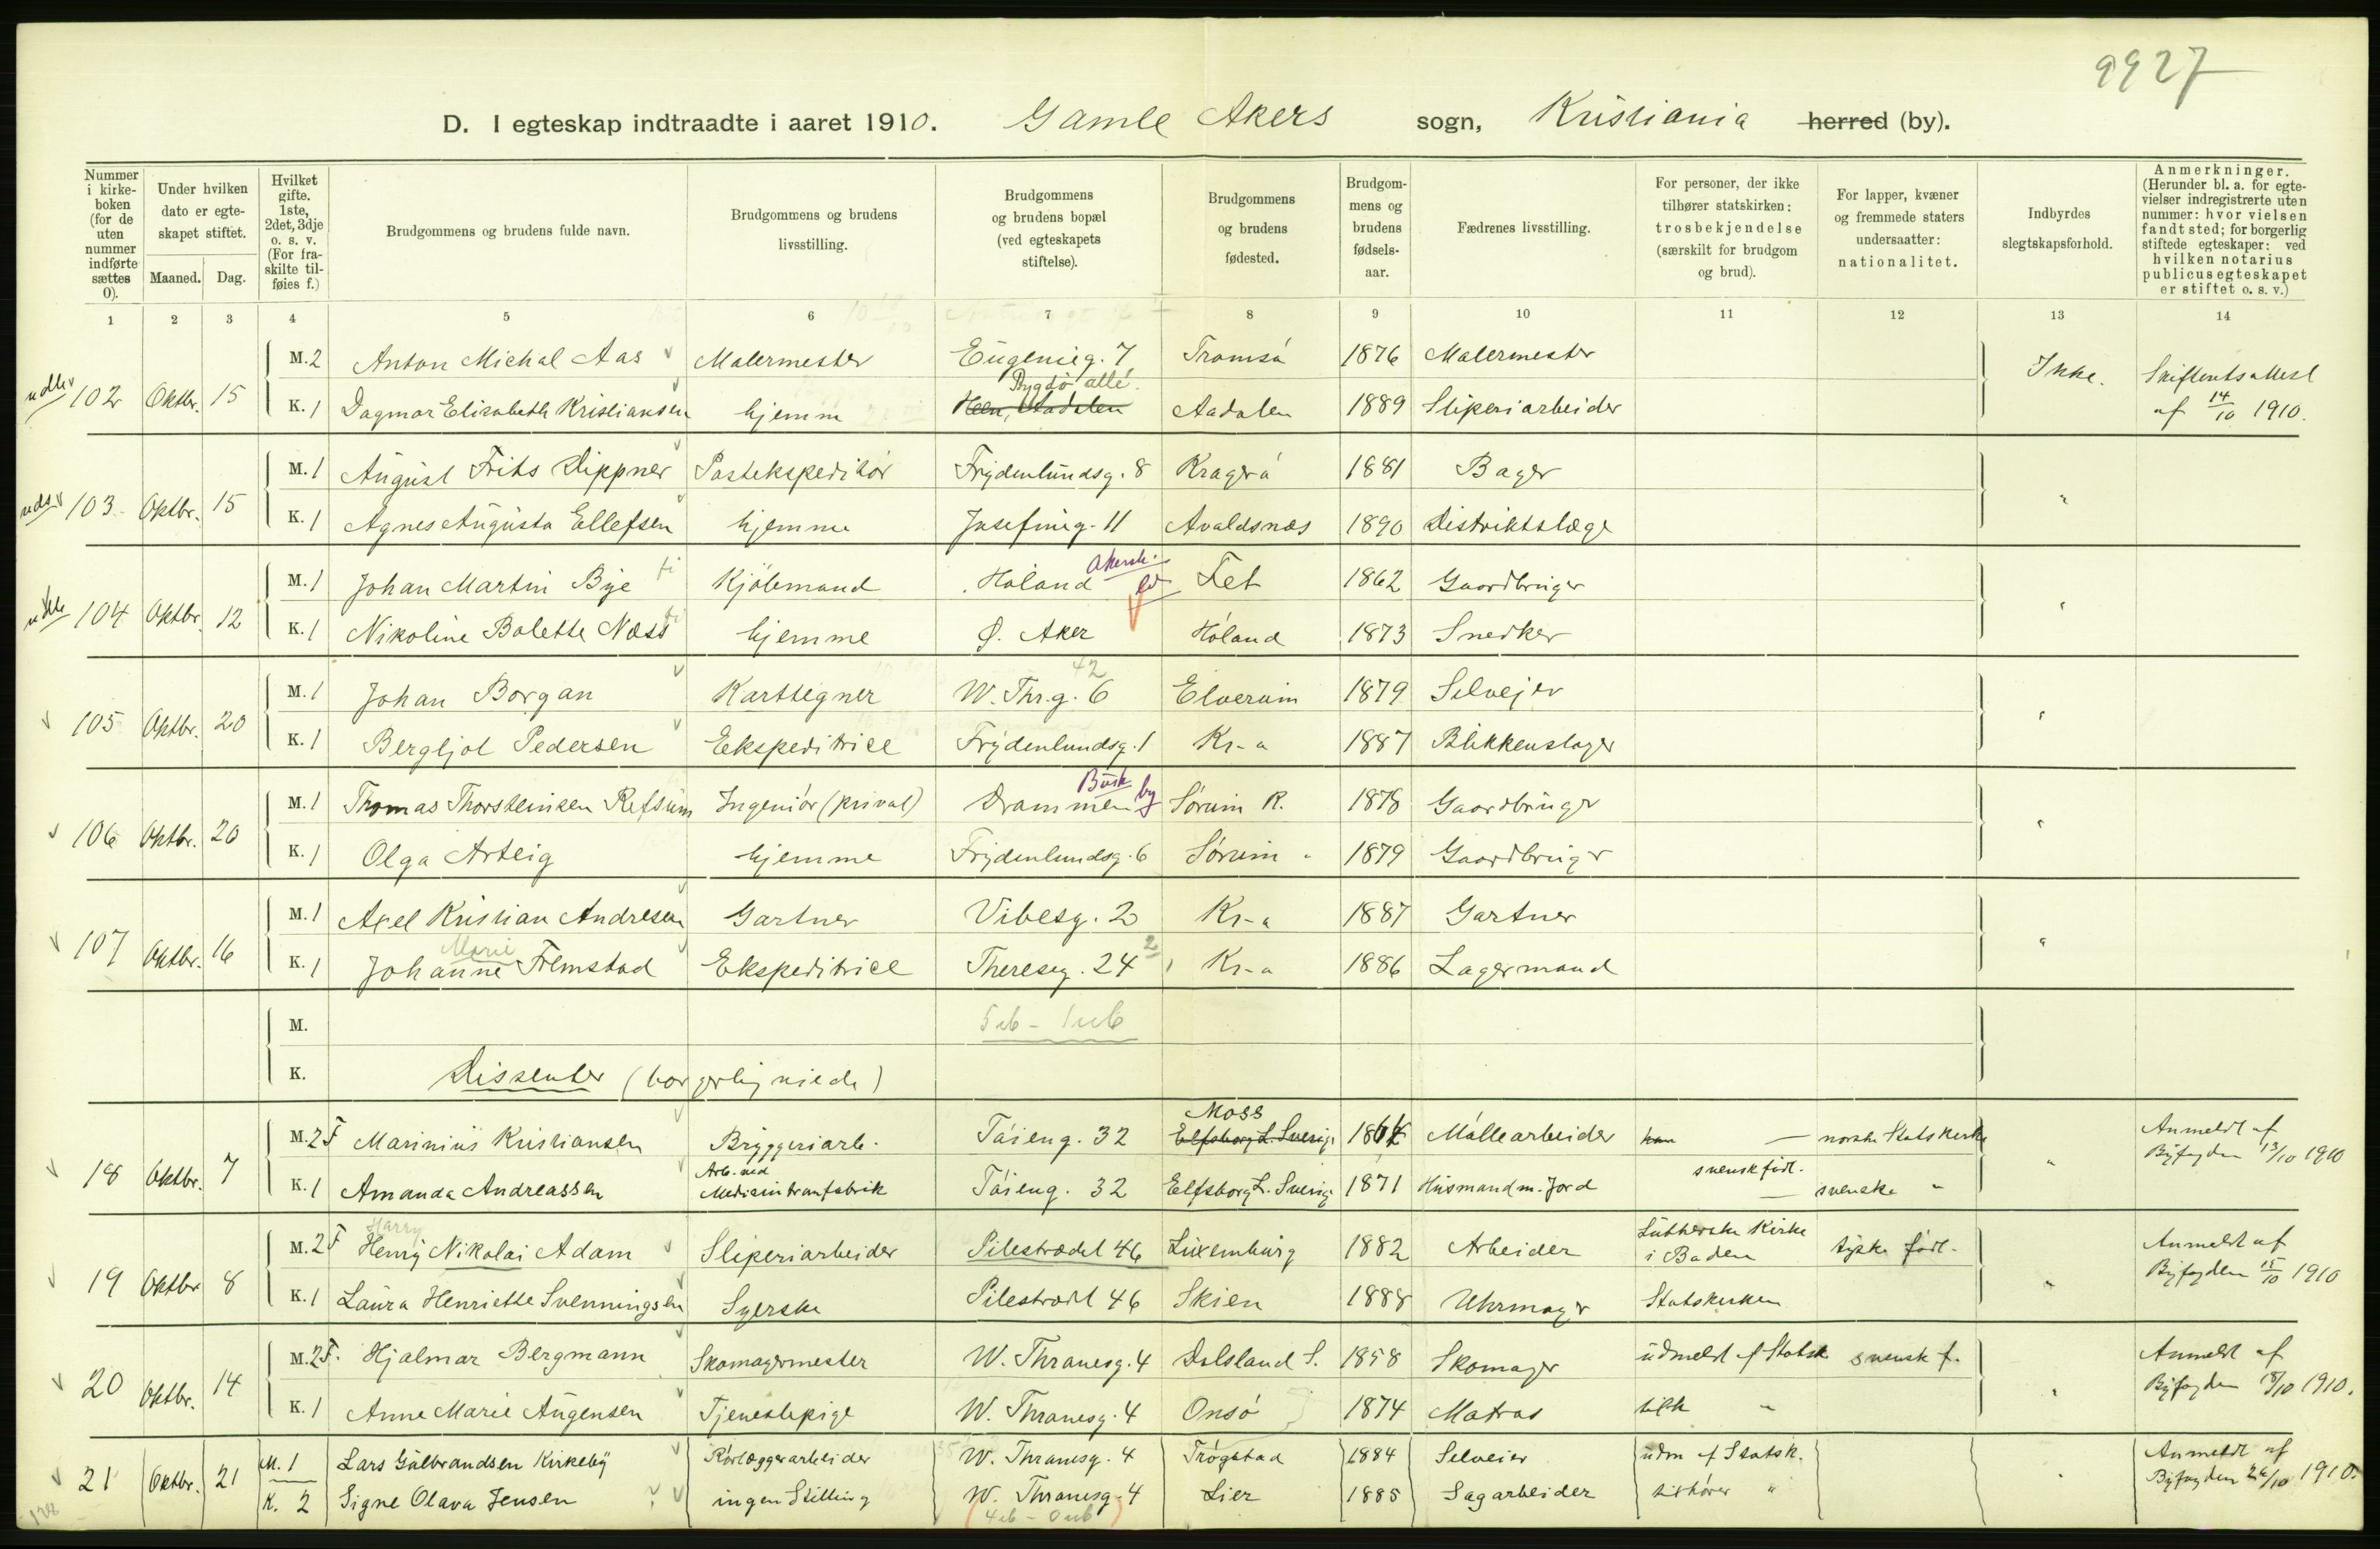 9927
D. I egteskap indtraadte i aaret 1910. Gamle Akers sogn, Kristiania herred (by).
Nummer i kirke-boken (for de uten nummer indførte sættes 0).
Under hvilken dato er egte-skapet stiftet.
Maaned. Dag.
Hvilket gifte. 1ste, 2det, 3dje o. s. v. (For fra-skilte til-føies f.)
Brudgommens og brudens fulde navn.
Brudgommens og brudens livsstilling.
Brudgommens og brudens bopæl (ved egteskapets stiftelse).
Brudgommens og brudens fødested.
Brudgom-mens og brudens fødsels-aar.
Fædrenes livsstilling.
For personer, der ikke tilhører statskirken: trosbekjendelse (særskilt for brudgom og brud).
For lapper, kvæner og fremmede staters undersaatter: nationalitet.
Indbyrdes slegtskapsforhold.
Anmerkninger. (Herunder bl. a. for egte-vielser indregistrerte uten nummer: hvor vielsen fandt sted; for borgerlig stiftede egteskaper: ved hvilken notarius publicus egteskapet er stiftet o. s. v.)
1 2 3 4 5 6 7 8 9 10 11 12 13 14
M. 2 Anton Michal Aas Malermester Eugenieg. 7 Tromsö 1876 Malermester
102 Oktbr. 15 Ikke. Skifteatsattest af 14/10 1910.
Bygdö allé.
K. 1 Dagmar Elisabeth Kristiansen hjemme Heen, Aadalen Aadalen 1889 Sliperiarbeider
M. 1 August Frits Dippner Postekspeditör Frydenlundsg. 8 Kragerö 1881 Bager
103 Oktbr. 15 "
K. 1 Agnes Augusta Ellefsen hjemme Josefineg. 11 Avaldsnæs 1890 Distriktslæge
M. 1 Johan Martin Bye Kjöbmand Höland Akersh. Fet 1862 Gaardbruger
104 Oktbr. 12 "
K. 1 Nikoline Bolette Næss hjemme Ø. Aker Höland 1873 Snedker
42
M. 1 Johan Borgan Karttegner W. Thr.g. 6 Elverum 1879 Selvejer
105 Oktbr. 20 "
K. 1 Bergljot Pedersen Ekspeditrice Frydenlundsg. 1 Kr-a 1887 Blikkenslager
Busk by
M. 1 Thomas Thorsteinsen Refsum Ingeniör (privat) Drammen Sörum R. 1878 Gaardbruger
106 Oktbr. 20 "
K. 1 Olga Arteig hjemme Frydenlundsg. 6 Sørum " 1879 Gaardbruger
M. 1 Axel Kristian Andresen Gartner Vibesg. 2 Kr-a 1887 Gartner
107 Oktbr. 16 "
Marie
K. 1 Johanne Fremstad Ekspeditrice Thereseg. 24 Kr-a 1886 Lagermand
M.
K. Dissenter (borgerlig viede)
Moss
M. 2 F Marinius Kristiansen Bryggeriarb. Töieng. 32 Elfsborg L. Sverige 1864 Möllearbeider han — norske Statskirke
18 Oktbr. 7 " Anmeldt af Byfogden 13/10 1910
Arb. ved svensk födt.
K. 1 Amanda Andreassen Medicintranfabrik Töieng. 32 Elfsborg L. Sverige 1871 Husmand m. Jord — svenske "
Harry
M. 2 F Henry Nikolai Adam Sliperiarbeider Pilestrædet 46 Luxemburg 1882 Arbeider Lutherske Kirke i Baden tyske födt.
19 Oktbr 8 " Anmeldt af Byfogden 15/10 1910
K. 1 Laura Henriette Svenningsen Syerske Pilestrædt 46 Skien 1888 Uhrmager Statskirken
M. 2 F. Hjalmar Bergmann Skomagermester W. Thranesg. 4 Dalsland S. 1858 Skomager udmeldt af Statsk svensk f.
20 Oktbr. 14 " Anmeldt af Byfogden 18/10 1910.
K. 1 Anne Marie Augensen Tjenestepige W. Thranesg. 4 Onsö 1874 Matros tilh "
M. 1 Lars Gulbrandsen Kirkeby Rörlæggerarbeider W. Thranesg. 4 Trögstad 1884 Selveier udm af Statsk.
21 Oktbr. 21 " Anmeldt af Byfogden 26/10 1910.
K. 2 Signe Olava Jensen ingen Stilling W. Thranesg. 4 Lier 1885 Sagarbeider tilhörer "